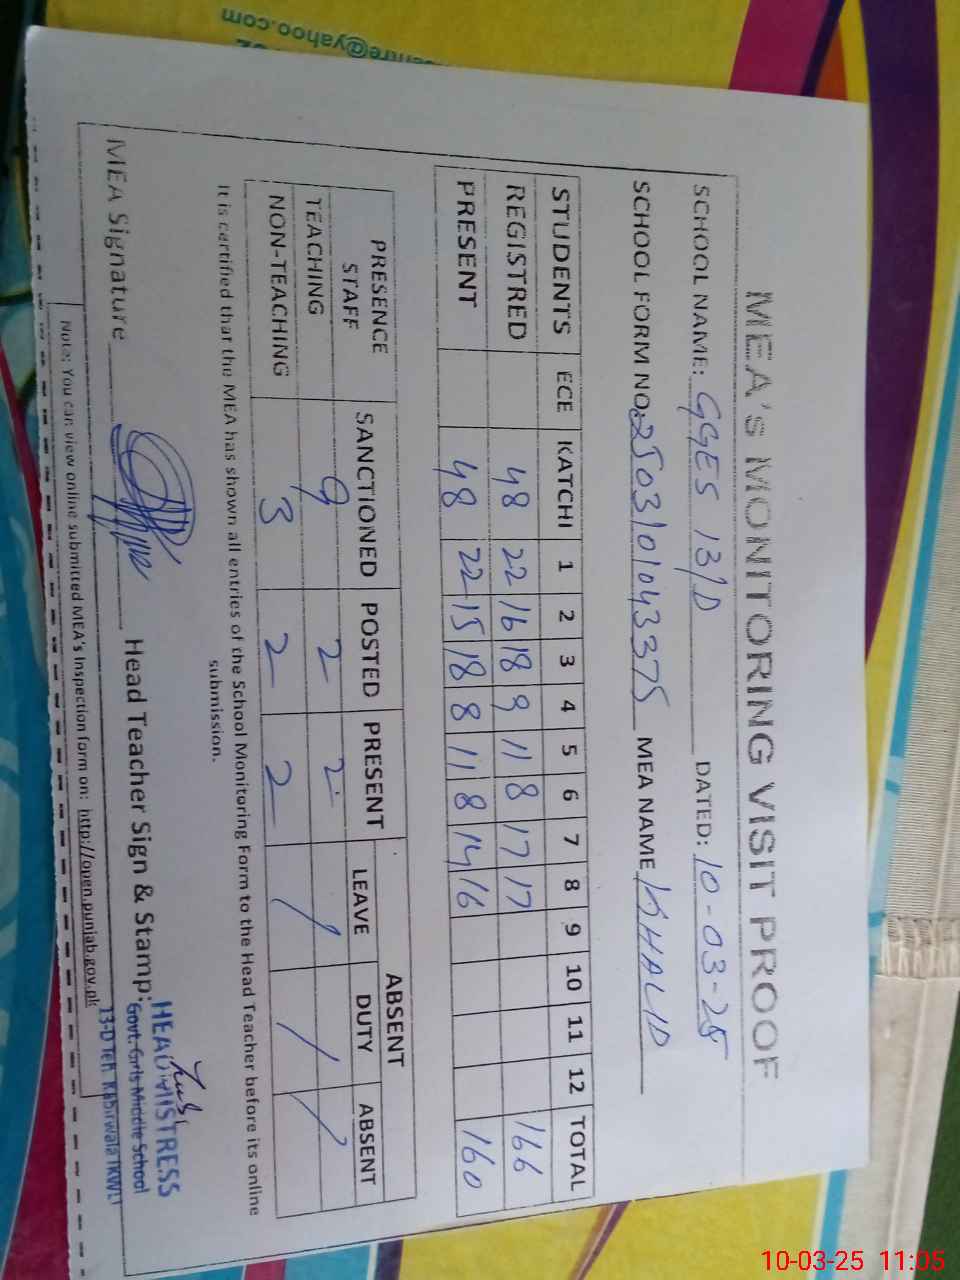 MEA's MONITORING VISIT PROOF
SCHOOL NAME: GGES 13/D DATED: 10-03-25
SCHOOL FORM NO: 2503101043375 MEA NAME KHALID
STUDENTS ECE KATCHI 1 2 3 4 5 6 7 8 9 10 11 12 TOTAL
REGISTRED 48 22 16 18 9 11 8 17 17 166
PRESENT 48 22 15 18 8 11 8 14 16 160
PRESENCE STAFF SANCTIONED POSTED PRESENT ABSENT
LEAVE DUTY ABSENT
TEACHING 9 2 2 / / /
NON-TEACHING 3 2 2
It is certified that the MEA has shown all entries of the School Monitoring Form to the Head Teacher before its online
submission.
MEA Signature Head Teacher Sign & Stamp:
HEADMISTRESS
Govt. Girls Middle School
13-D Teh. Kabirwala (KWL)
Note: You can view online submitted MEA's Inspection form on: http://open.punjab.gov.pk
centre@yahoo.com
10-03-25 11:05